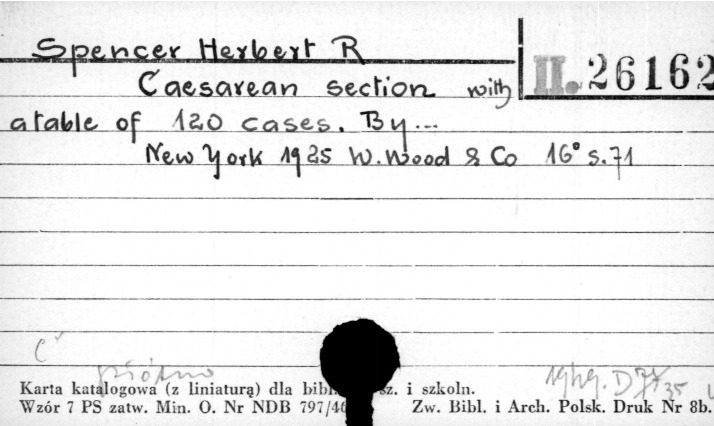 Spencer Herbert R
II. 26162
Caesarean section with
a table of 120 cases. By...
New York 1925 W. Wood & Co 16° s. 71
C
płótno
1949. D
35
Karta katalogowa (z liniaturą) dla sz. i szkoln.
Wzór 7 PS zatw. Min. O. Nr NDB 797/46 Zw. Bibl. i Arch. Polsk. Druk Nr 8b.